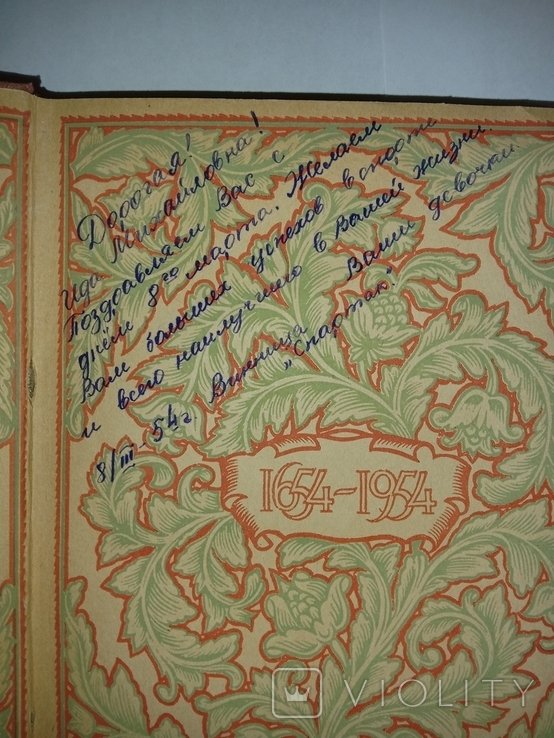 Дорогая!
Ида Михайловна!
Поздравляем Вас с
днём 8го марта. Желаем
Вам больших успехов в спорте
и всего наилучшего в Вашей жизни.
Ваши девочки.
8/III-54г Винница „Спартак".
1654-1954
VIOLITY